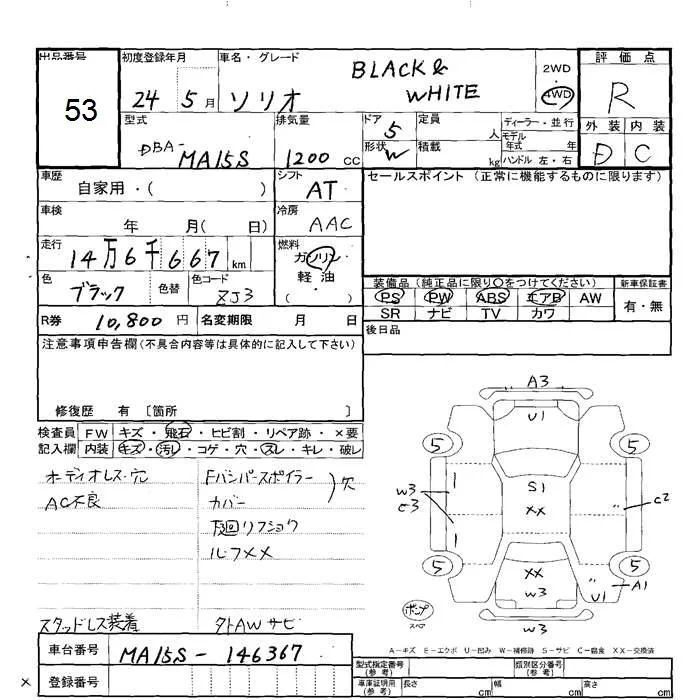 出品番号
53
初度登録年月
24 5月
車名・グレード
ソリオ BLACK & WHITE
2WD
4WD
評価点
R
外装 内装
D C
型式
DBA-MA15S
排気量
1200 cc
ドア
5
形状
W
定員
人
積載
kg
ディーラー・並行
モデル年式 年
ハンドル 左・右
車歴
自家用・( )
シフト
AT
セールスポイント (正常に機能するものに限ります)
車検
年 月( 日)
冷房
AAC
走行
14万6千667km
燃料
ガソリン
軽・油
( )
色
ブラック
色替
色コード
ZJ3
装備品(純正品に限り○をつけてください)
新車保証書
PS PW ABS エアB AW
SR ナビ TV カワ
有・無
R券 10,800円
名変期限 月 日
後日品
注意事項申告欄(不具合内容等は具体的に記入して下さい)
修復歴 有 [箇所 ]
検査員 FW キズ・飛石・ヒビ割・リペア跡・×要
記入欄 内装 キズ・汚レ・コゲ・穴・スレ・キレ・破レ
オーディオレス・穴
AC不良
Fバンパースポイラー
カバー
欠
ルーフ××
スタッドレス装着
外AWサビ
A3
U1
5
5
S1
××
W3
E3
C2
5
5
××
W3
A1
U1
W3
ポンプ
スペア
A-キズ E-エクボ U-凹み W-補修跡 S-サビ C-腐食 XX-交換済
車台番号
MA15S-146367
登録番号
×
型式指定番号
(参考)
類別区分番号
(参考)
車庫証明用
(参考)
長さ cm
幅 cm
高さ cm